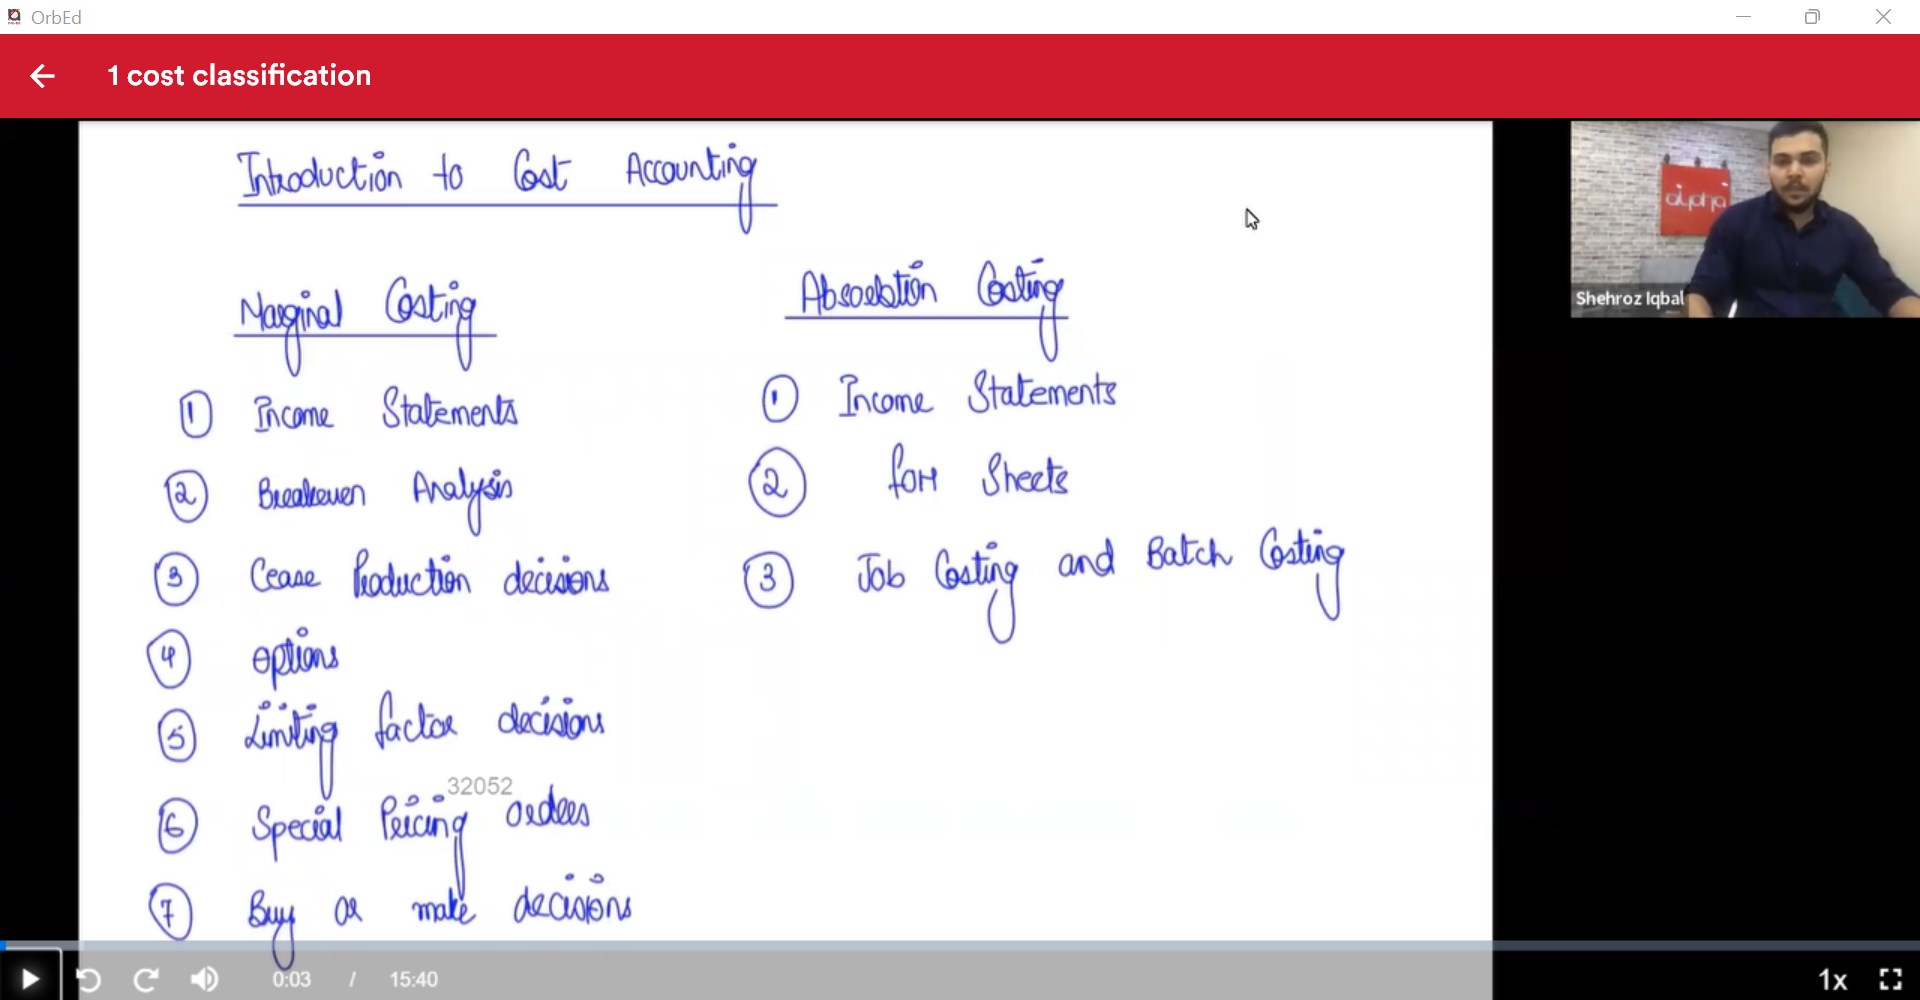 OrbEd
1 cost classification
Introduction to Cost Accounting
Marginal Costing
1 Income Statements
2 Breakeven Analysis
3 Cease Production decisions
4 options
5 Limiting factor decisions
6 Special Pricing orders
7 Buy or make decisions
32052
Absorbtion Costing
1 Income Statements
2 for Sheets
3 Job Costing and Batch Costing
alpha
Shehroz Iqbal
0:03 / 15:40
1x